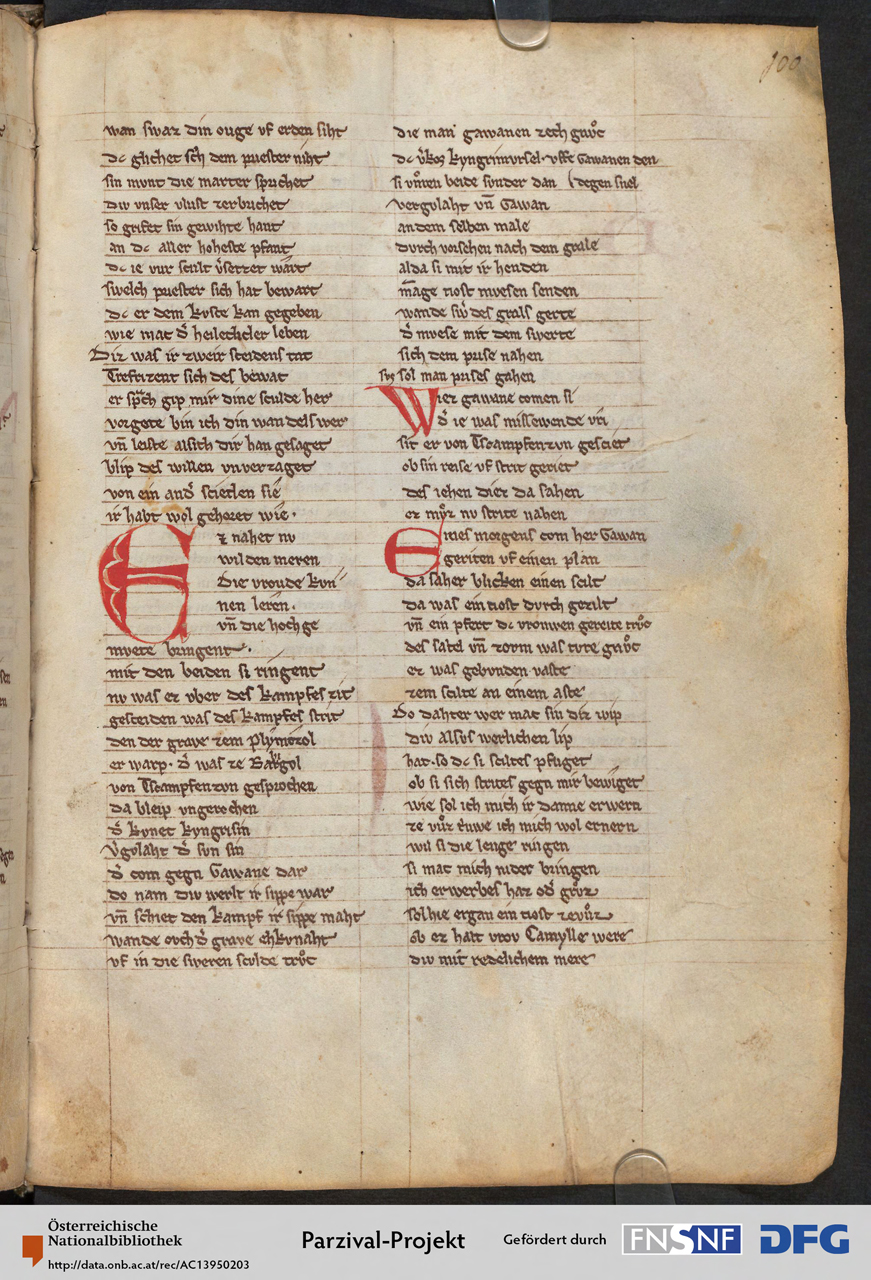 100
wan swaz din ouge vf erden siht
dc glichet sich dem priester niht
sin mvnt die marter sprichet
div vnser vlust zerbrichet
so grifet sin gewihte hant
an dc aller hoheste pfant
dc ie vur scult v̾setzet wart
swelch priester sich hat bewart
dc er dem kvste kan gegeben
wie mac d̾ heilecheler leben
Diz was ir zweir sceidens tac
Trefrizent sich des bewac
er sprach gip mir dine sculde her
vor gote bin ich din wandels wer
vn̄ leiste alsich dir han gesaget
blip des willen vnverzaget
von ein and̾ scieden sie
ir habt wol gehoret wie.
Ez nahet nv
wilden meren
Die vroude kvn
nen leren.
vn̄ die hochge
mvete bringent.
mit den beiden si ringent
nv was ez vber des kampfes zit
gesceiden was des kampfes strit
den der grave zem plymizol
er warp. d̾ was ze Barbigol
von Tscampfenzvn gesprochen
da bleip vngerochen
d̾ kvnec kyngrisin
v̾golaht d̾ svn sin
d̾ com gegn Gawane dar
do nam div werlt ir sippe war
vn̄ schiet den kampf ir sippe maht
wande ovch d̾ grave ehkvnaht
vf in die sweren scvlde trůc
die man gawanen zech gnůc
dc v̾kos kyngrimvrsel. vffe Gawanen den
degen snel
si vůren beide svnder dan
vergvlaht vn̄ Gawan
an dem selben male
durch vorschen nach dem grale
alda si mit ir henden
mange tiost mvesen senden
wande sw̾ des grals gerte
d̾ mvese mit dem swerte
sich dem prise nahen
svs sol man prises gahen
Wiez gawane comen si
d̾ ie was missewende vri
sit er von Tscampfenzvn gesciet
ob sin reise vf strit geriet
des iehen diez da sahen
er mvͦz nv strite nahen
Eines morgens com her Gawan
geriten vf einen plan
da saher blicken einen scilt
da was ein tiost durch gezilt
vn̄ ein pfert dc vrouwen gereite trůc
des satel vn̄ zovm was tvre gnůc
ez was gebvnden vaste
zem scilte an einem aste
Do dahter wer mac sin diz wip
div alsvs werlichen lip
hat. so dc si sciltes pfliget
ob si sich strites gegn mir bewiget
wie sol ich mich ir danne erwern
ze vůz truwe ich mich wol ernern
wil si die lenge ringen
si mac mich nider bringen
ich erwerbes haz od̾ grůz
sol hie ergan ein tiost ze vůz
ob ez halt vrov Camylle were
div mit redelichem mere
Österreichische
Nationalbibliothek
http://data.onb.ac.at/rec/AC13950203
Parzival-Projekt
Gefördert durch
FNSNF
DFG